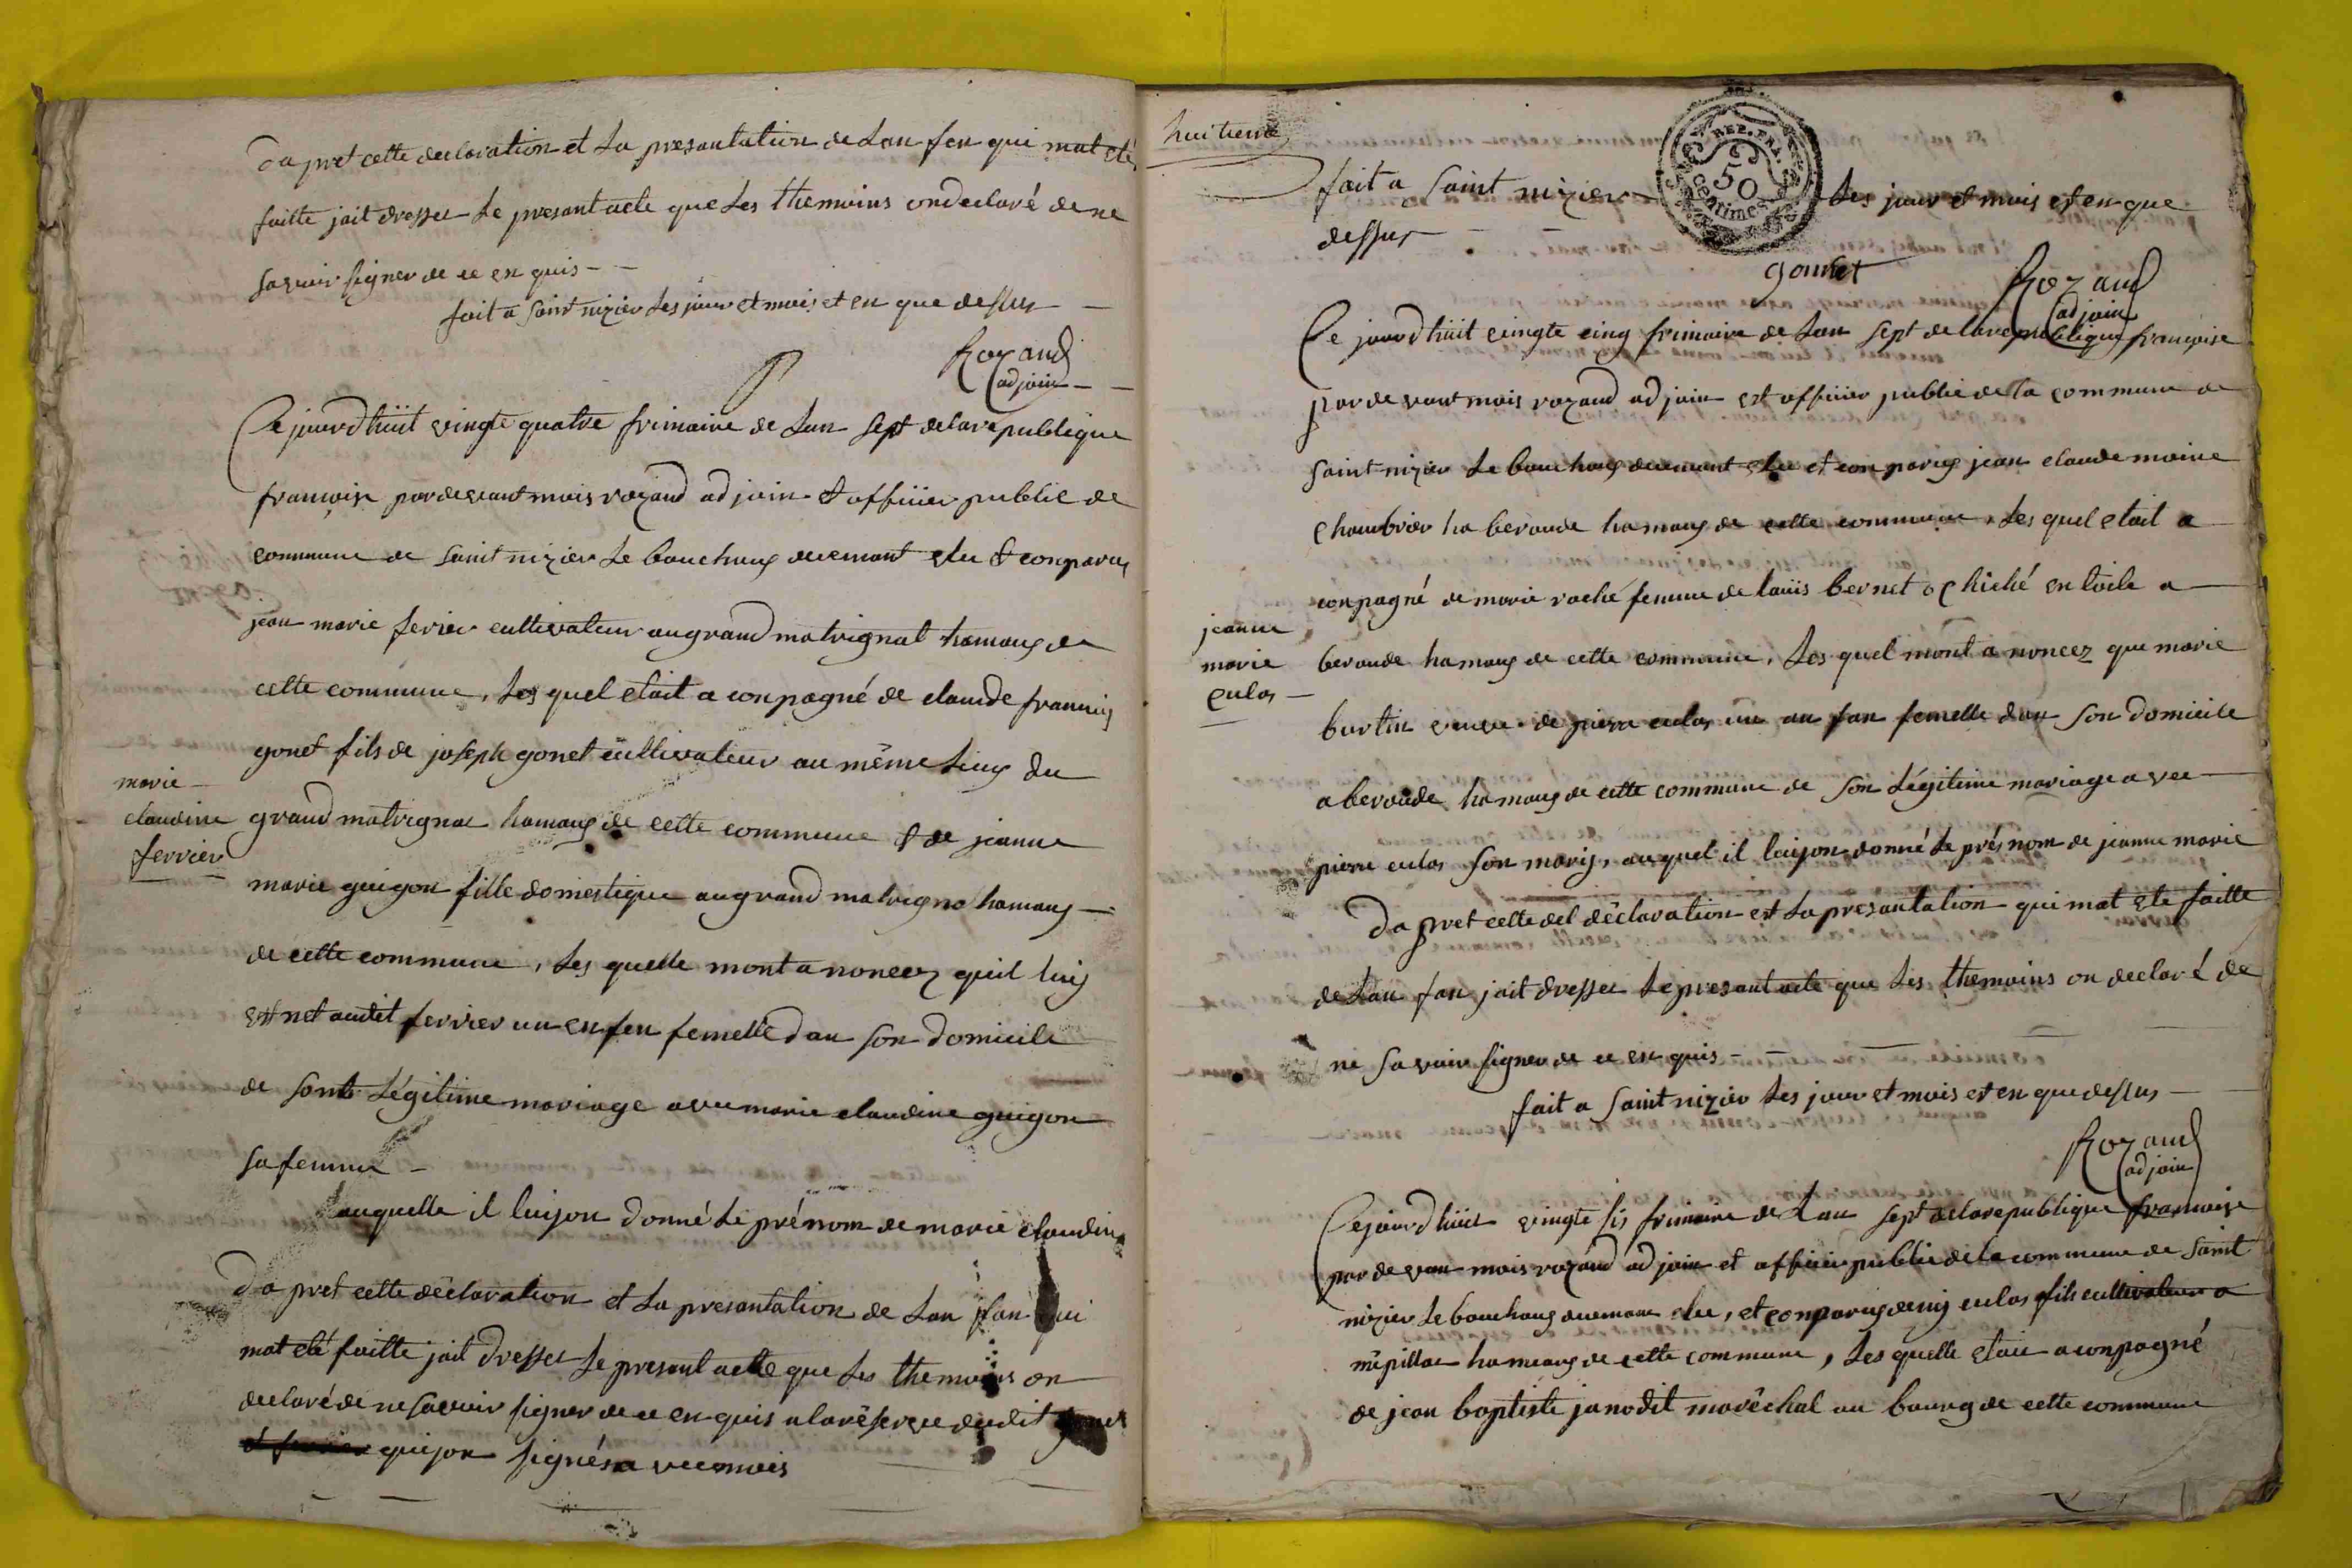 da pret cette declaration et La presantation de Lan fen qui mat eté
faitte jait dresser Le presant acte que Les themoins on declaré de ne
savoir signer de ce en quis
fait a saint nizier Les jour et mois et en que dessus
Rozand
adjoin
Ce jourdhüit vingte quatre frimaire de Lan sept de la republique
francoise par devant mois rozand adjoin et offiiier public de
commune de saint nizier Le bouchoux duemant elu et conparus
jean marie ferier cultivateur au grand matrignat hamaux de
cette commune, Les quel etait a conpagné de claude francois
gonet fils de joseph gonet cultivateur au même Lieux du
marie
claudine
ferrier
grand matrignat hamaux de cette commune et de jeanne
marie guigon fille domestique au grand matrigna hamaux
de cette commune, Les quelle mont a noncez quil luij
est net audit ferrier un en fen femelle dan son domicile
de sont Légitime mariage avec marie claudine guigon
sa femme
auquelle il luijon donné Le prénom de marie claudine
da pret cette déclaration et La presantation de Lan fan qui
mat eté faitte jait dresser Le presant acte que Les themoins on
declaré de ne savoir signer de ce en quis a la réserve dudit gonet
et ferrier quijon signés avec mois
huitieme
REP. FRA.
50
centimes
fait a saint nizier Les jour et mois et en que
dessus
gonet
Rozand
adjoin
Ce jourdhüit vingte cinq frimaire de Lan sept de la republique françoise
par devant mois rozand adjoin et offiiier public de la commune de
saint nizier Le bouchoux duemant elu et conparus jean claude moine
chambrier ha beroude hamaux de cette commune, Les quel etait a
conpagné de marie roché femme de louis bernet chiché en toile a
jeanne
marie
culas
beroude hamaux de cette commune, Les quel mont a noncez que marie
burtin veuve de pierre culas un an fan femelle dan son domicile
a beroude hamaux de cette commune de son Légitime mariage avec
pierre culas son marij, auquel il luijon donné Le prés nom de jeanne marie
da pret cette del déclaration et La presantation qui mat eté faitte
de Lan fan jait dresser Le presant acte que Les themoins on declaré de
ne savoir signer de ce en quis
fait a saint nizier Les jour et mois et en que dessus
Rozand
adjoin
Ce jourdhüit vingte sis frimaire de Lan sept de la republique francoise
par de van mois rozand adjoin et officier public de la commune de saint
nizier Le bouchoux duemant elu, et conparus denij culas fils cultivateur a
mépillat hameaux de cette commune, Les quelle etait a conpagné
de jean baptiste janodit maréchal au bourg de cette commune